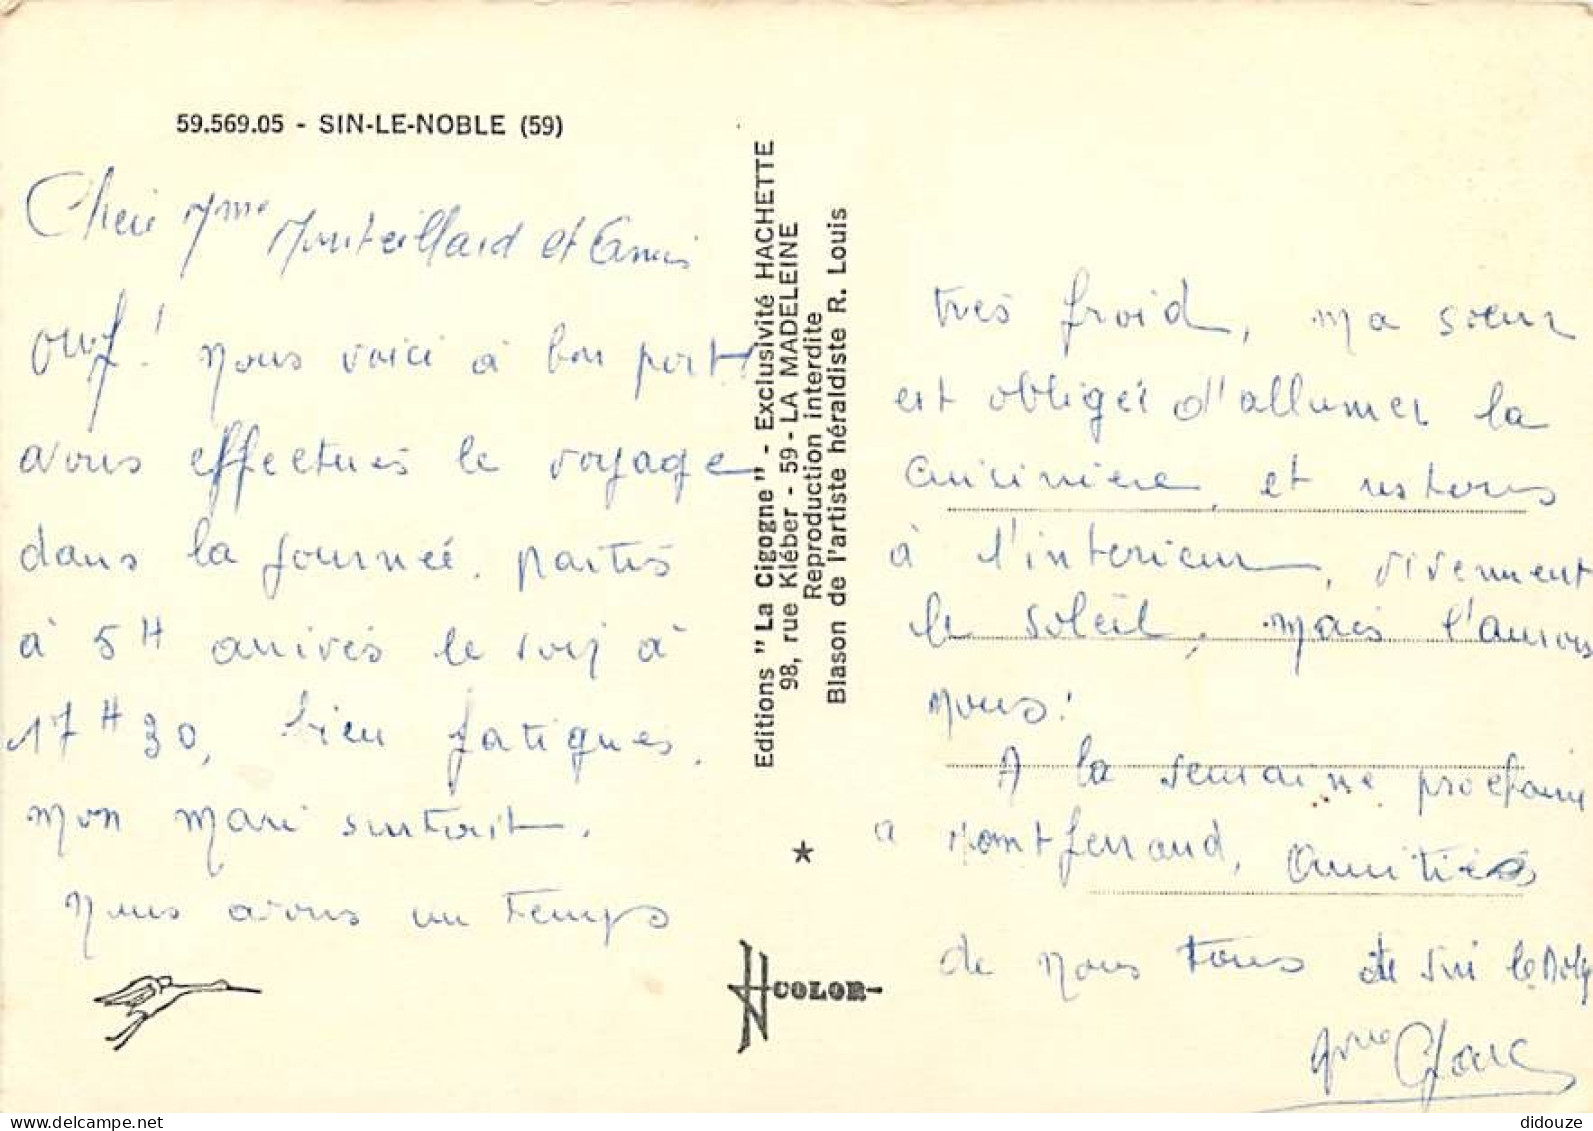 59.569.05 - SIN-LE-NOBLE (59)
Cheie Mme Monteillard et Amis
Ouf! nous voici à bon port!
avons effectués le voyage
dans la journeé. partis
à 5H arrivés le soir à
17H30, bien fatigués.
mon mari surtout.
Nous avons un temps
Editions "La Cigogne" - Exclusivité HACHETTE
98, rue Kléber - 59 - LA MADELEINE
Reproduction interdite
Blason de l'artiste héraldiste R. Louis
COLOR
très froid, ma soeur
est obligeé d'allumer la
cuisiniere, et restons
à l'interieur, vivement
le soleil, mais l'aurons
nous!
A la semaine prochaine
a Montferrand, Amitiés
de nous tous de Sin le Noble
Mme
didouze